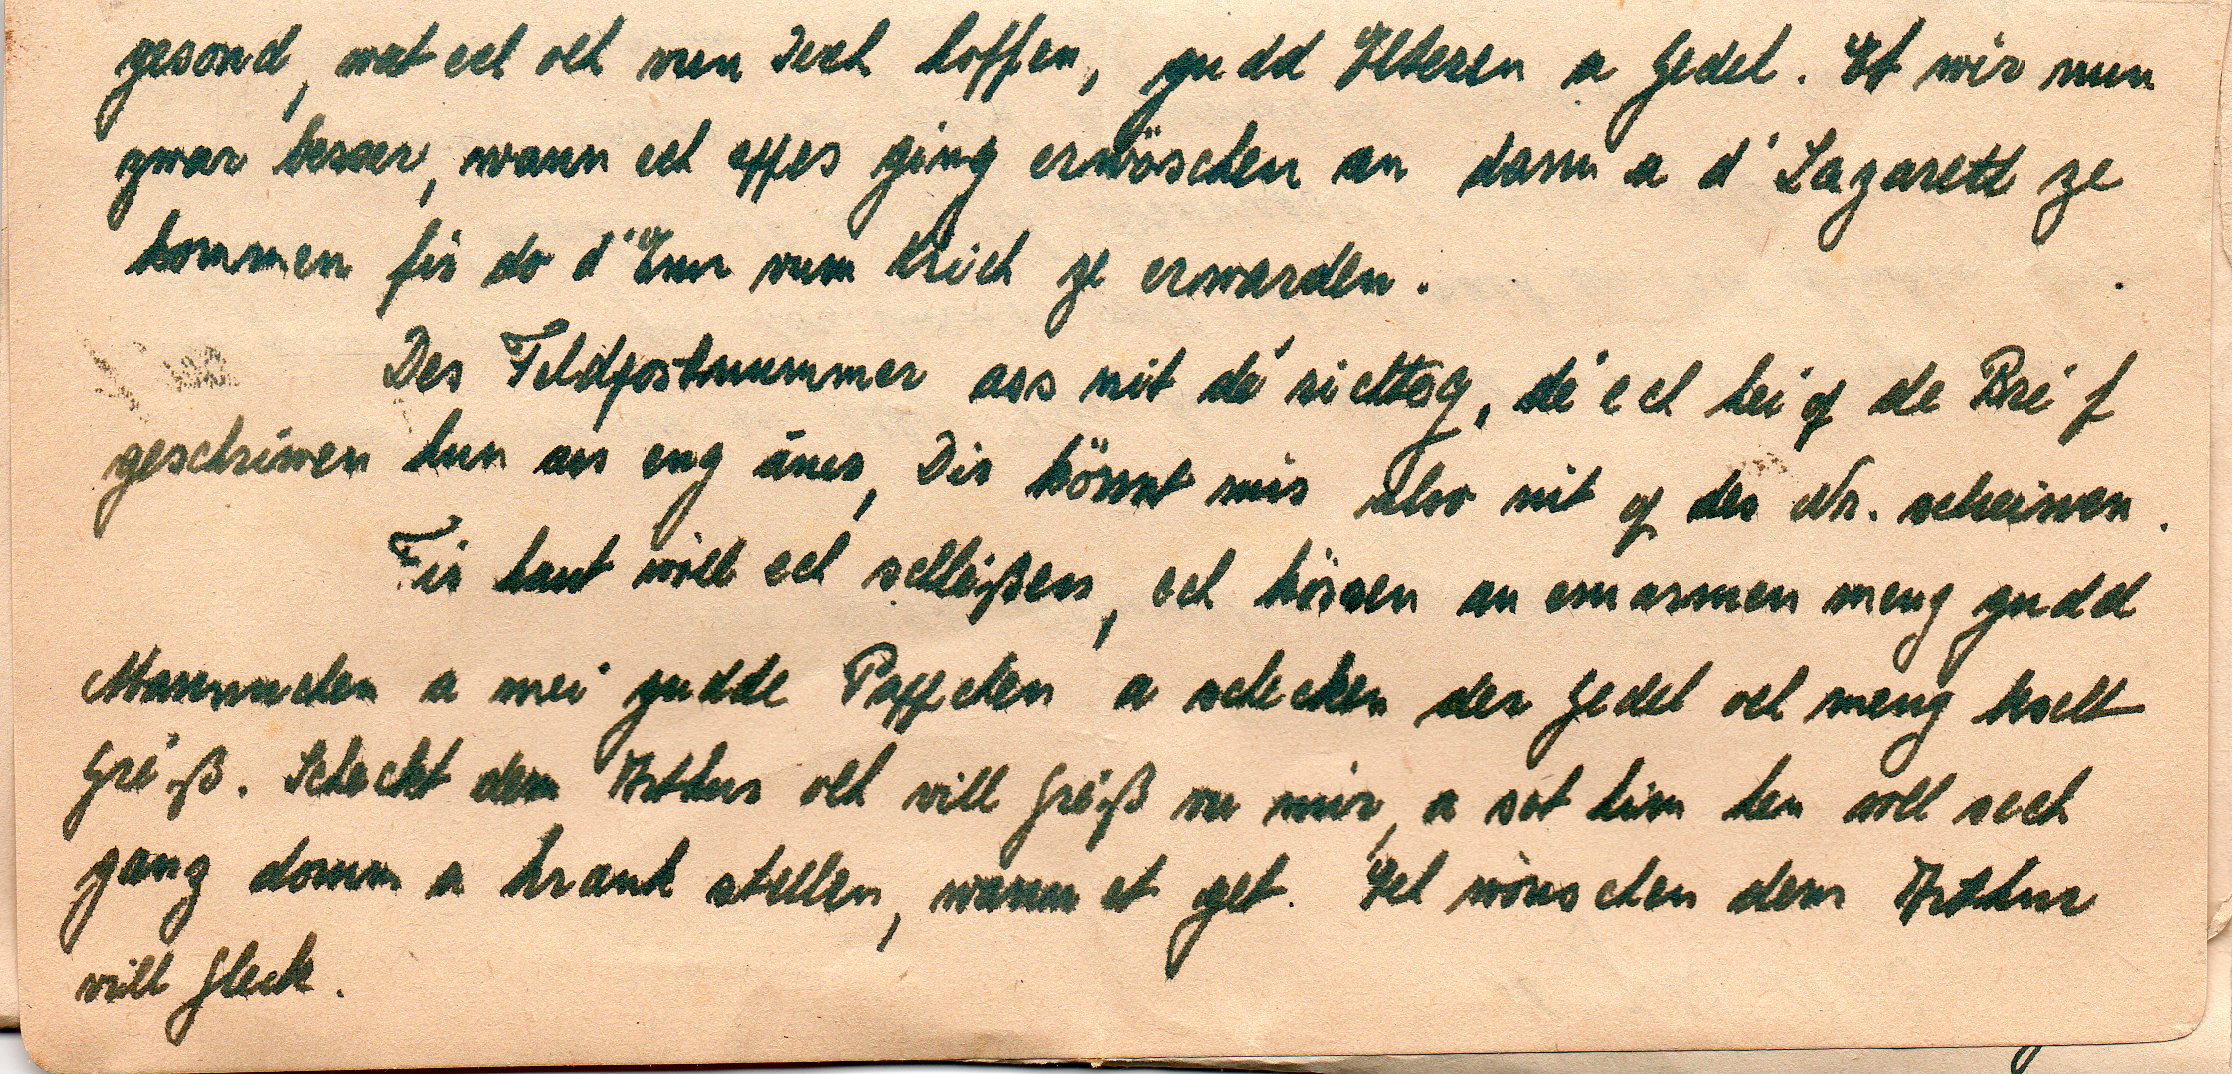 gesond, wat ech och vun Iech hoffen, gudd Elteren a Gedel. Et wir nun
zwar besser, wann ech eppes ging erwöschen an dann a d'Lazarett ze
kommen fir do d'Enn vum Krich ze erwarden.
Des Feldpostnummer ass nit dé richteg, dé ech hei op de Bréf
geschriwen hun ass eng äner, Dir könnt mir also nit op des Nr. schreiwen.
Fir haut wöll ech schléißen, ech kössen an emarmen meng gudd
Mammchen a mei gudde Pappchen a schecken der Gedel och meng häll
Gréiß. Scheckt dem Arthur och vill Gréiß vu mir, a sot him hen soll sech
ganz domm a krank stellen, wann et get. Ech wönschen dem Arthur
vill Gleck.